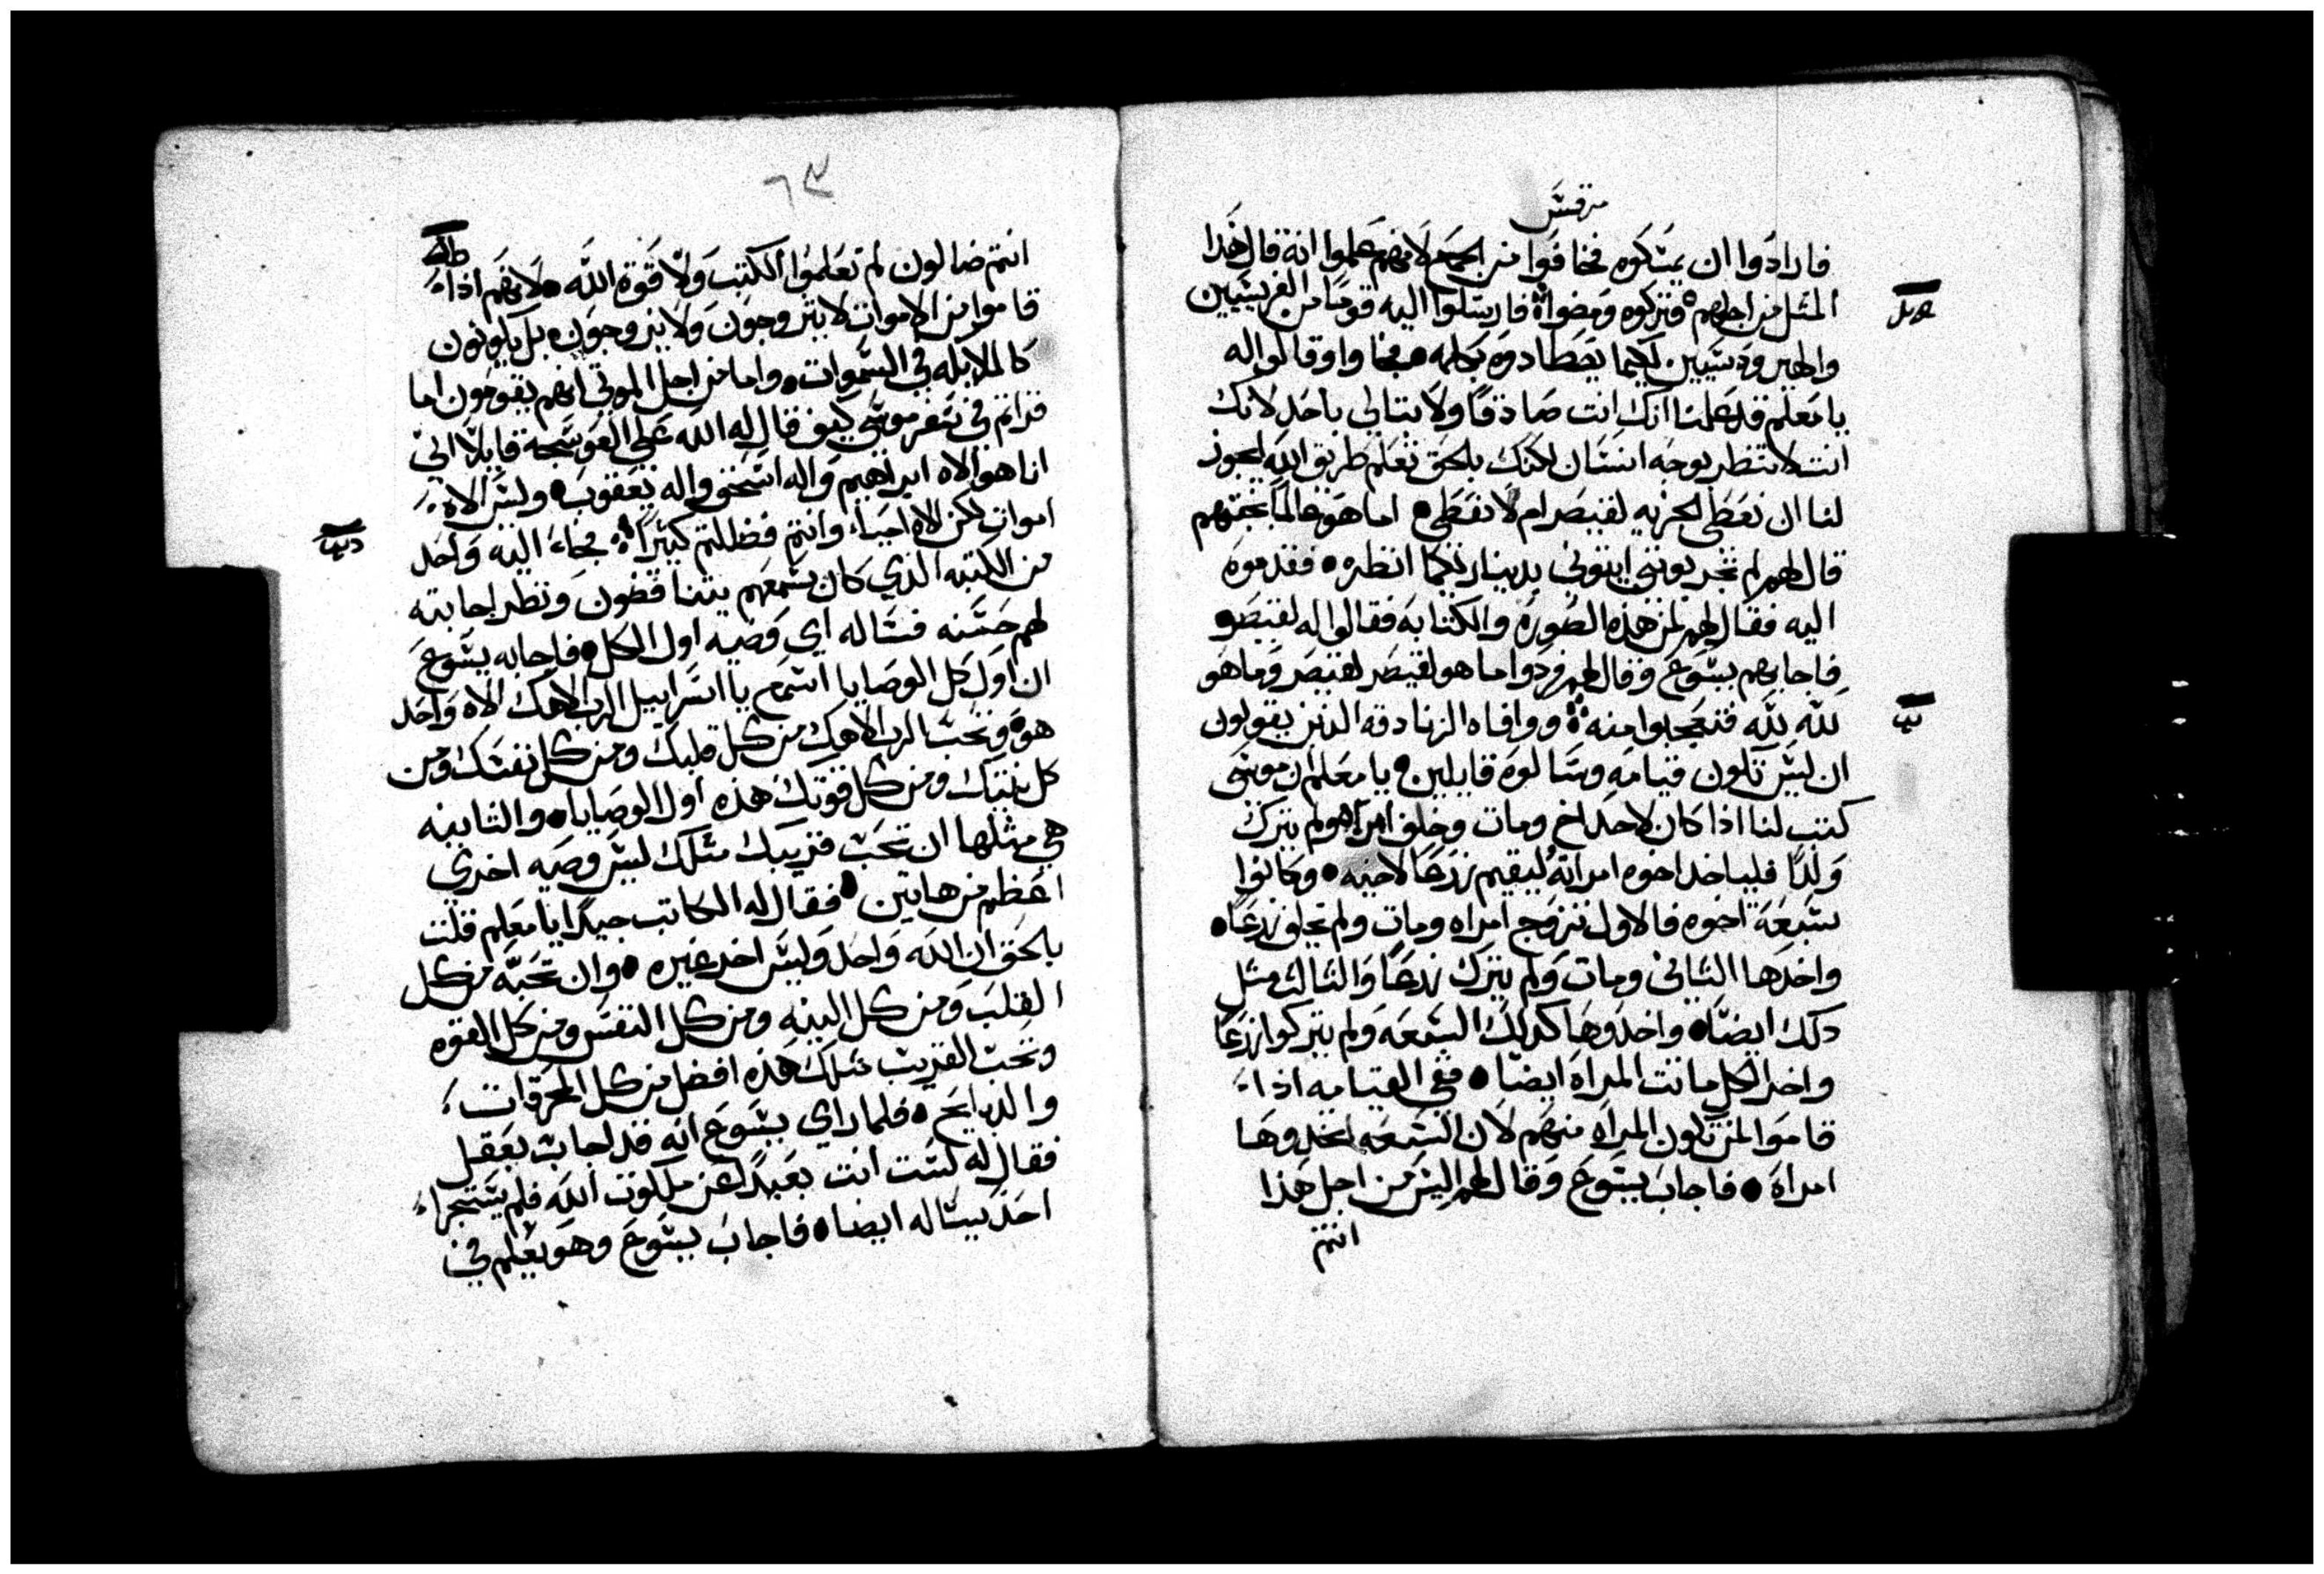 مرقس
فارادوا ان يمسكوه فخافوا من الجمع لانهم علموا انه قال هذا
المثل من اجلهم فتركوه ومضوا فارسلوا اليه قوما من الفريسيين
والهيرودسيين لكيما يصطادوه بكلمه فجاوا وقالوا له
يا معلم قد علمنا انك انت صادقا ولا تبالي باحد لانك
انت لا تنظر بوجه انسان لكنك بالحق تعلم طريق الله ايجوز
لنا ان نعطى الجزيه لقيصر ام لا نعطى اما هو عالما بخبثهم
قال لهم لم تجربوننى ايتونى بدينار لكيما انظره فقدموه
اليه فقال لهم لمن هذه الصوره والكتابه فقالوا له لقيصر
فاجابهم يسوع وقال لهم ردوا ما هو لقيصر لقيصر وما هو
لله لله فتعجبوا منه ووافاه الزنادقه الذين يقولون
ان ليس تكون قيامه وسالوه قايلين يا معلم ان موسى
كتب لنا اذا كان لاحد اخ ومات وخلف امراه ولم يترك
ولدا فلياخد اخوه امراته ليقيم زرعا لاخيه وكانوا
سبعة اخوه فالاول تزوج امراه ومات ولم يخلف زرعا
واخدها الثاني ومات ولم يترك زرعا والثالث مثل
دلك ايضا واخدوها كدلك السبعه ولم يتركوا زرعا
واخر الكل ماتت المراه ايضا ففي القيامه اذا
قاموا لمن تكون المراه منهم لان السبعه اتخدوها
امراه فاجاب يسوع وقال لهم اليس من اجل هذا
انتم
٦٣
انتم ضالون لم تعلموا الكتب ولا قوة الله لانهم اذا
قاموا من الاموات لا يتزوجون ولا يزوجون بل يكونون
كالملايكه في السموات واما من اجل الموتى انهم يقومون اما
قراتم في سفر موسى كيف قال له الله على العوسجة قايلا اني
انا هو الاه ابراهيم واله اسحق واله يعقوب وليس الاه
اموات لكن الاه احياء وانتم فضللتم كثيرا فجاء اليه واحد
من الكتبه الذي كان يسمعهم يتناقضون ونظر اجابته
لهم حسنه فساله اي وصيه اول الكل فاجابه يسوع
ان اول كل الوصايا اسمع يا اسراييل الرب الاهك الاه واحد
هو وتحب الرب الاهك من كل قلبك ومن كل نفسك ومن
كل نيتك ومن كل قوتك هذه اولا الوصايا والثانيه
هي مثلها ان تحب قريبك مثلك ليس وصيه اخري
اعظم من هاتين فقال له الكاتب جيدا يا معلم قلت
بالحق ان الله واحد وليس اخر غيره وان تحبه من كل
القلب ومن كل النيه ومن كل النفس ومن كل القوه
وتحب القريب مثلك هذه افضل من كل المحرقات
والدبايح فلما راي يسوع انه قد اجاب بعقل
فقال له لست انت بعيدا عن ملكوت الله فلم يستجرا
احد يساله ايضا فاجاب يسوع وهو يعلم في